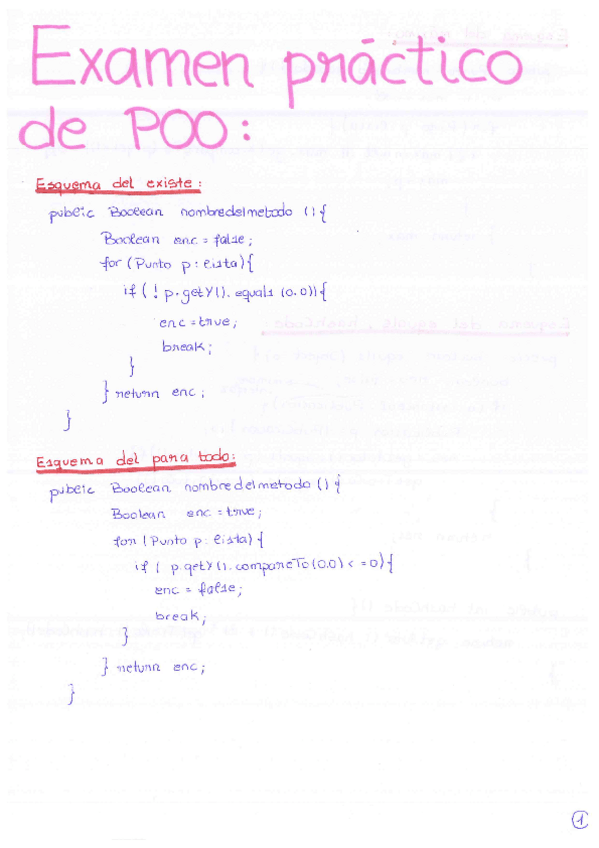 Examen práctico
de POO:
Esquema del existe:
public Boolean nombredelmetodo () {
Boolean enc = false;
for (Punto p: lista) {
if ( ! p.getY().equals (0.0)) {
enc = true;
break;
}
} return enc;
}
Esquema del para todo:
public Boolean nombredelmetodo () {
Boolean enc = true;
for (Punto p: lista) {
if ( p.getY().compareTo(0.0) < = 0) {
enc = false;
break;
}
} return enc;
}
1